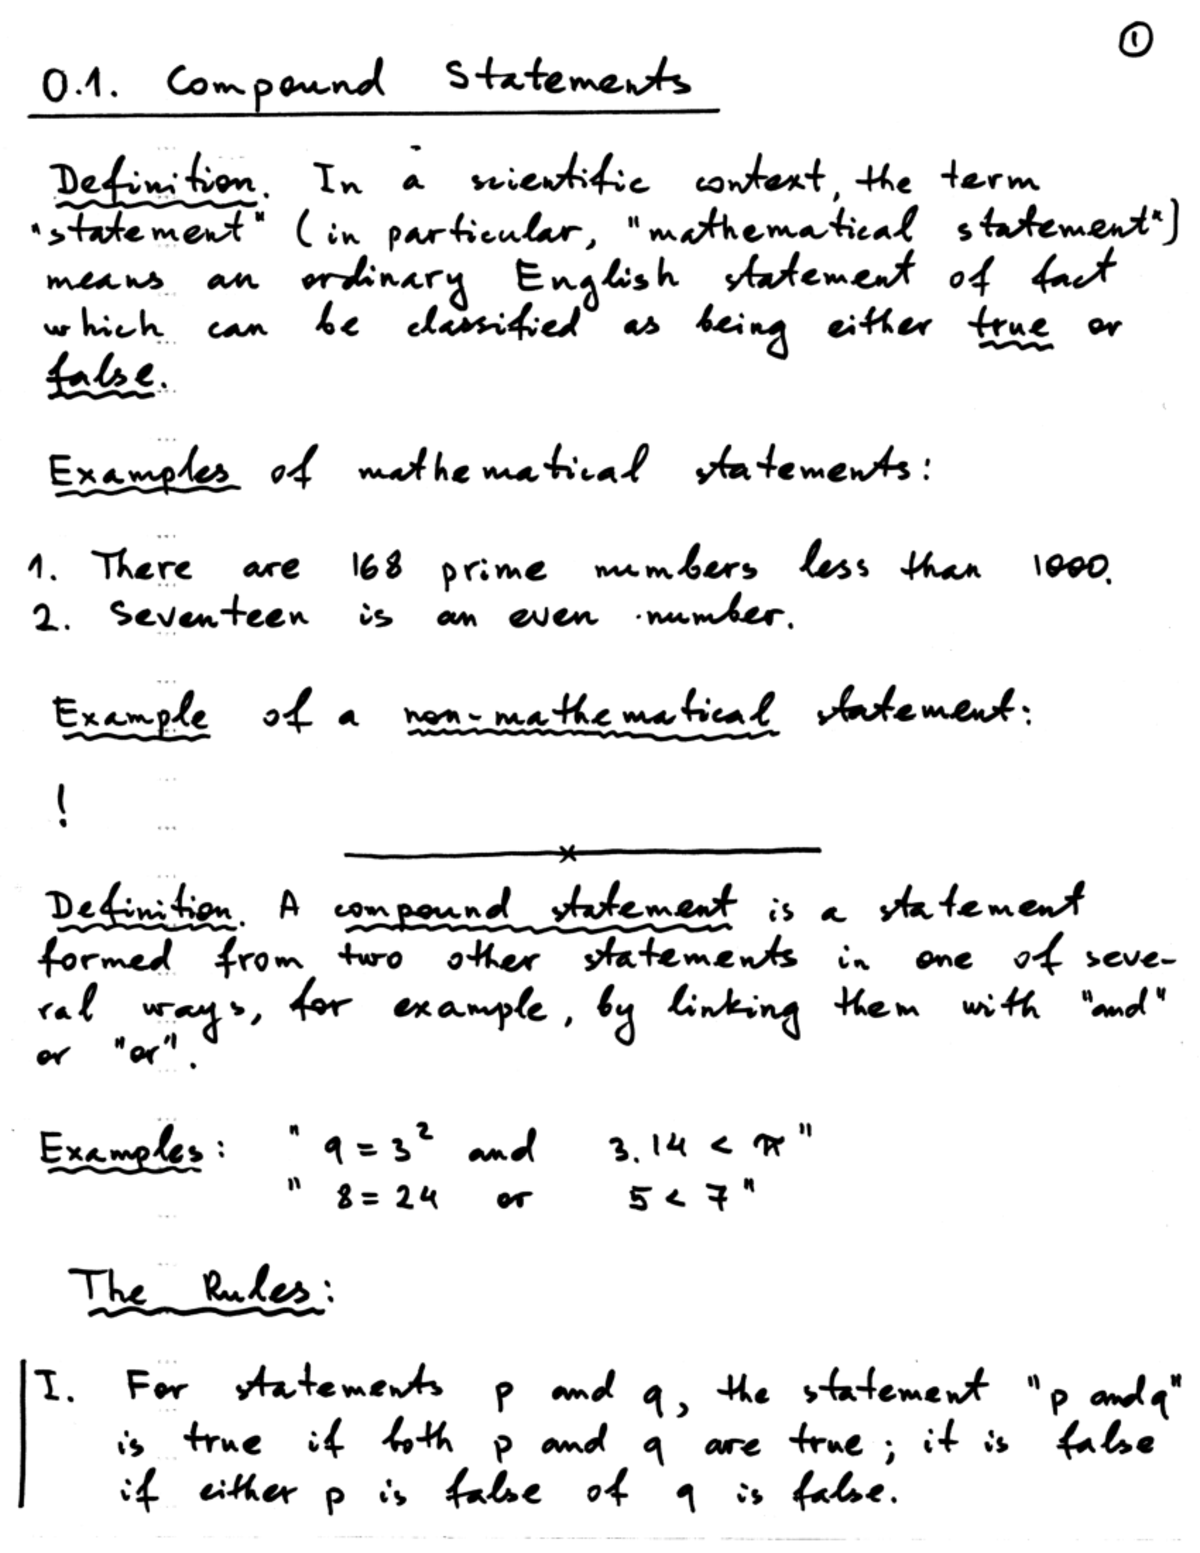 ①
0.1. Compound Statements
Definition. In a scientific context, the term
"statement" (in particular, "mathematical statement")
means an ordinary English statement of fact
which can be classified as being either true or
false.
Examples of mathematical statements:
1. There are 168 prime numbers less than 1000.
2. Seventeen is an even number.
Example of a non-mathematical statement:
!
Definition. A compound statement is a statement
formed from two other statements in one of seve-
ral ways, for example, by linking them with "and"
or "or".
Examples: "9 = 3² and 3.14 < π"
"8 = 24 or 5 < 7"
The Rules:
I. For statements p and q, the statement "p and q"
is true if both p and q are true; it is false
if either p is false of q is false.